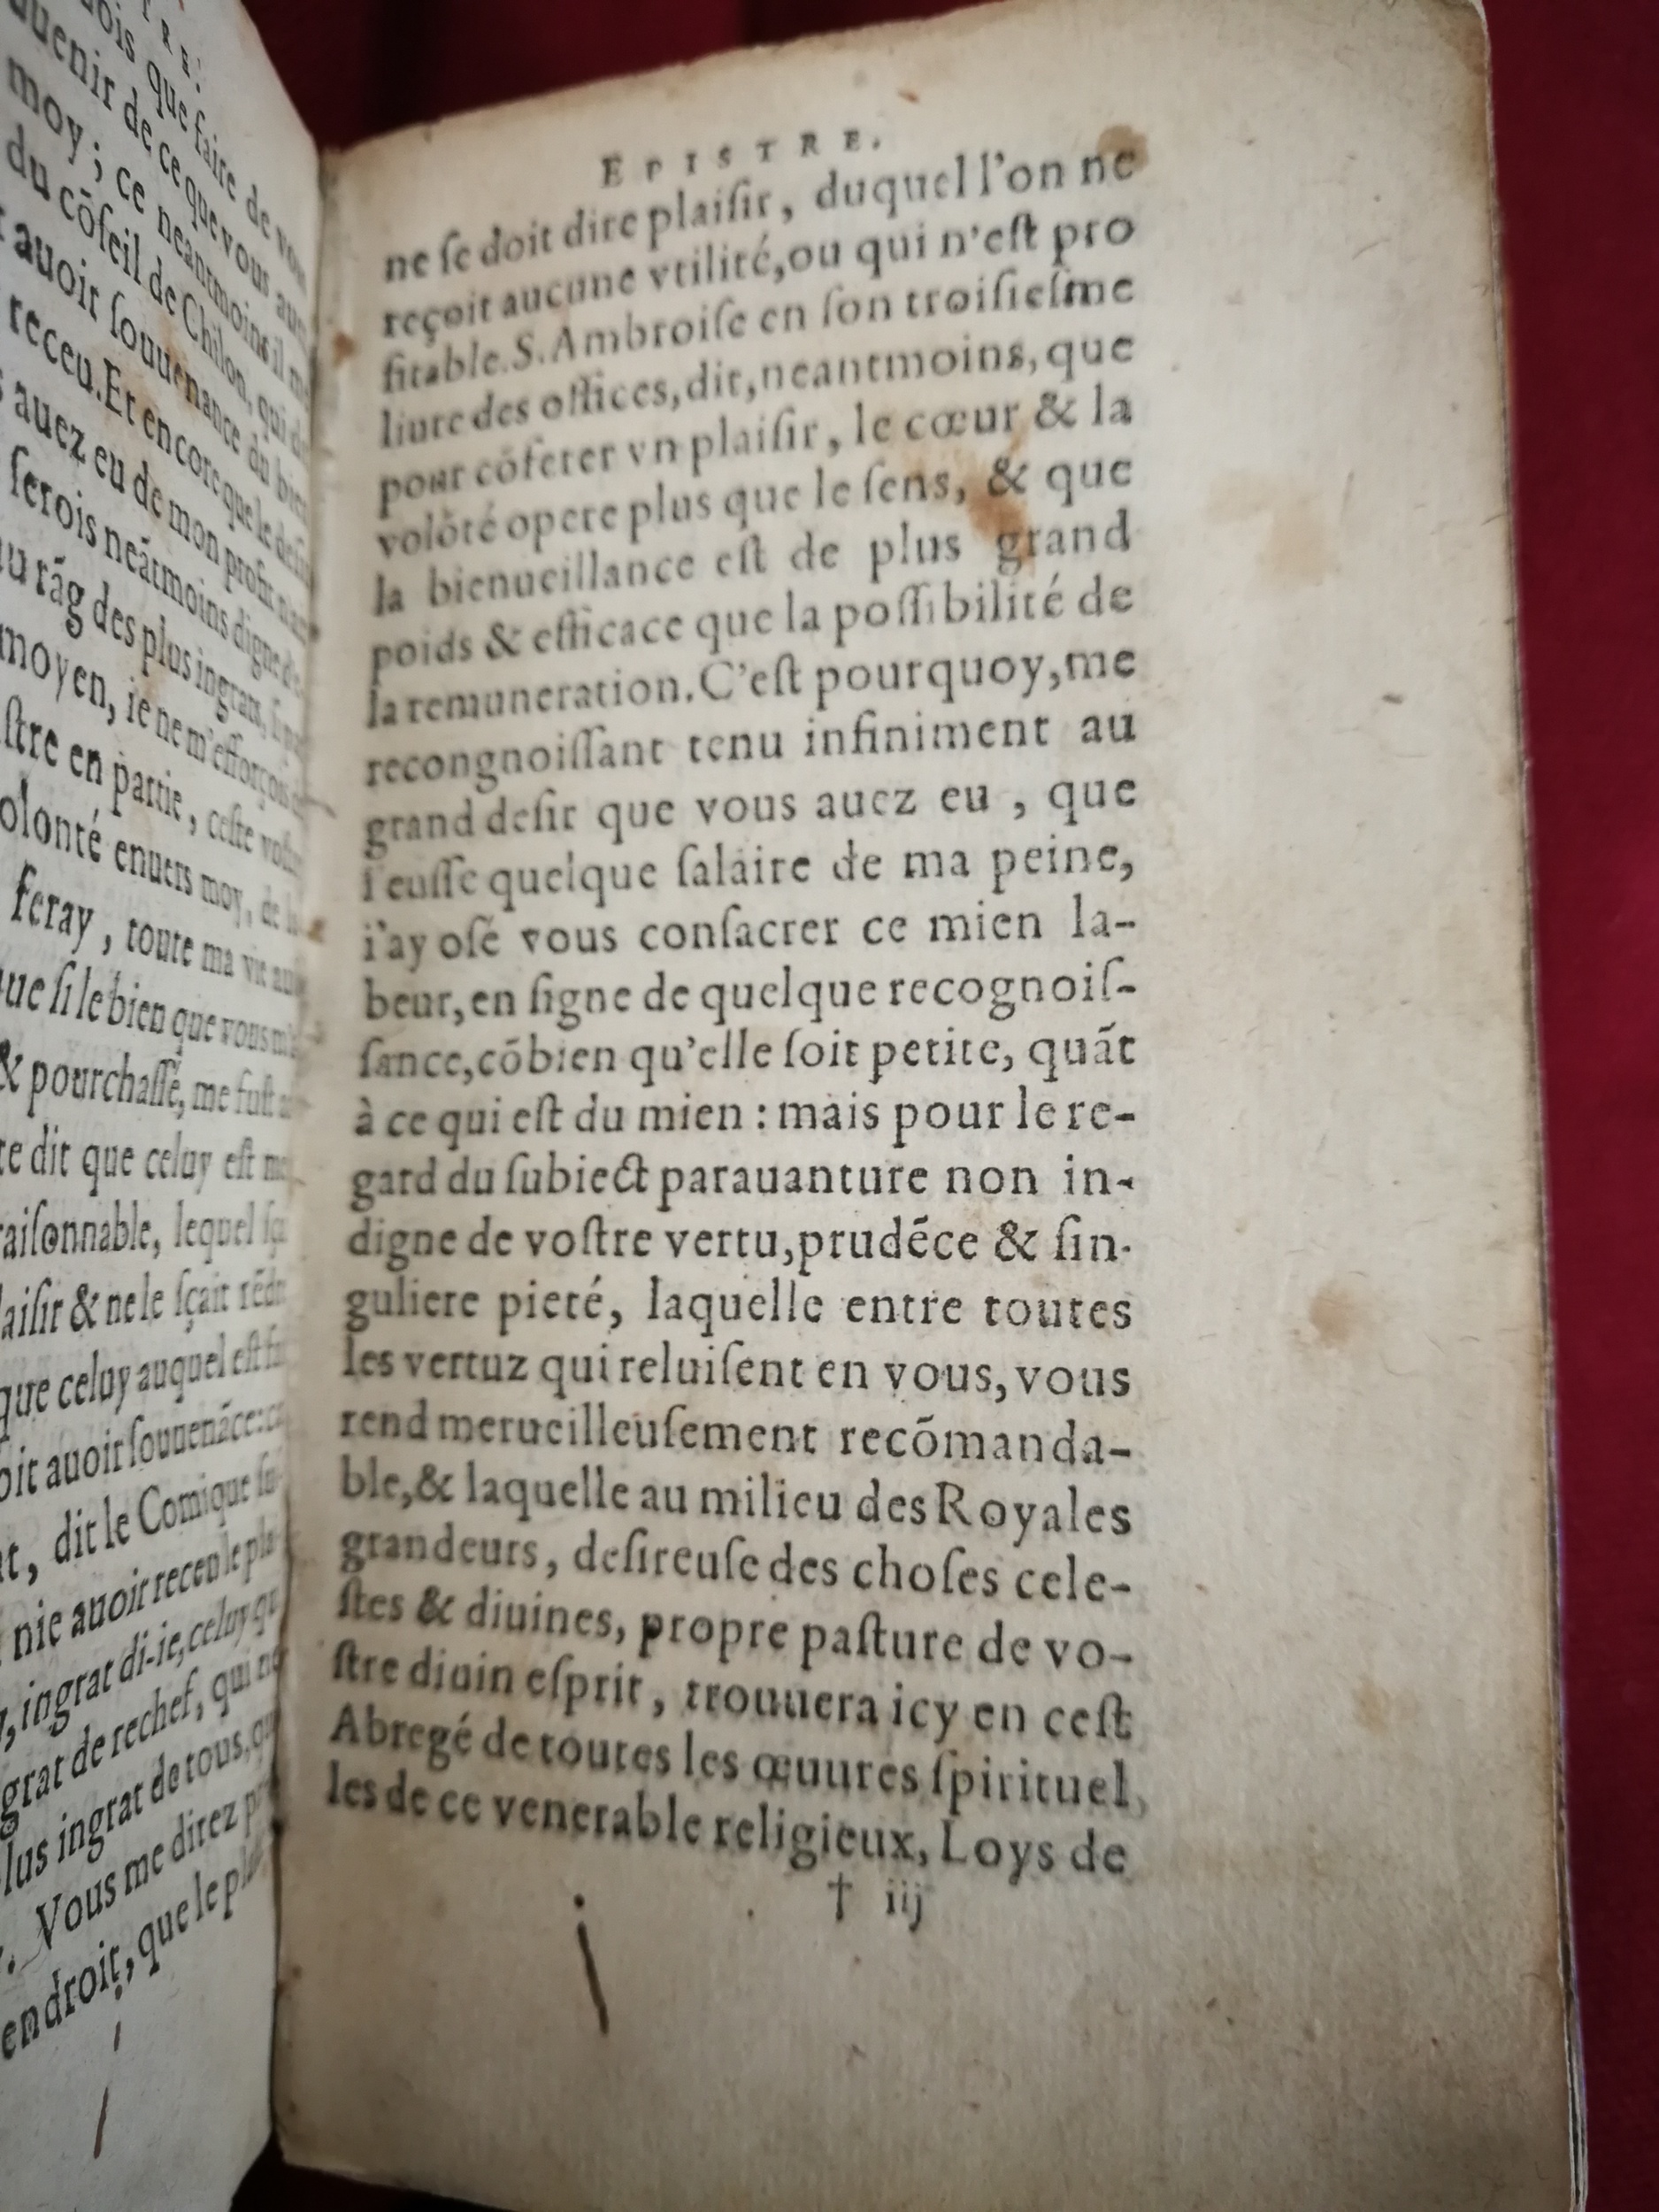 TRE.
dois que faire de vou
uenir de ce que vous auez
moy; ce neantmoins il me
du cōſeil de Chilon, qui
auoir ſouuenance du bien
receu. Et encore que le deſir
auez eu de mon profit
ſerois neātmoins digne de
rāg des plus ingrats,
moyen, ie ne m'efforçois
ſtre en partie, ceſte voſtre
olonté enuers moy, de
feray, toute ma vie
ue ſi le bien que vous
& pourchaſſé, me fuſt
te dit que celuy eſt
aiſonnable, lequel
laiſir & ne le ſçait rēdre
que celuy auquel eſt
oit auoir ſouuenāce:
t, dit le Comique
nie auoir receu le pla-
, ingrat di-ie, celuy qui
grat de rechef, qui ne
lus ingrat de tous,
. Vous me direz
endroit, que le
EPISTRE.
ne ſe doit dire plaiſir, duquel l'on ne
reçoit aucune vtilité, ou qui n'eſt pro
fitable. S. Ambroiſe en ſon troiſieſme
liure des offices, dit, neantmoins, que
pour cōferer vn plaiſir, le cœur & la
volōté opere plus que le ſens, & que
la bienueillance eſt de plus grand
poids & efficace que la poſſibilité de
la remuneration. C'eſt pourquoy, me
recongnoiſſant tenu infiniment au
grand deſir que vous auez eu , que
i'euſſe quelque ſalaire de ma peine,
i'ay oſé vous conſacrer ce mien la-
beur, en ſigne de quelque recognoiſ-
ſance, cōbien qu'elle ſoit petite, quāt
à ce qui eſt du mien : mais pour le re-
gard du ſubiect parauanture non in-
digne de voſtre vertu, prudēce & ſin-
guliere pieté, laquelle entre toutes
les vertuz qui reluiſent en vous, vous
rend merueilleuſement recōmanda-
ble, & laquelle au milieu des Royales
grandeurs, deſireuſe des choſes cele-
ſtes & diuines, propre paſture de vo-
ſtre diuin eſprit, trouuera icy en ceſt
Abregé de toutes les œuures ſpirituel,
les de ce venerable religieux, Loys de
† iij